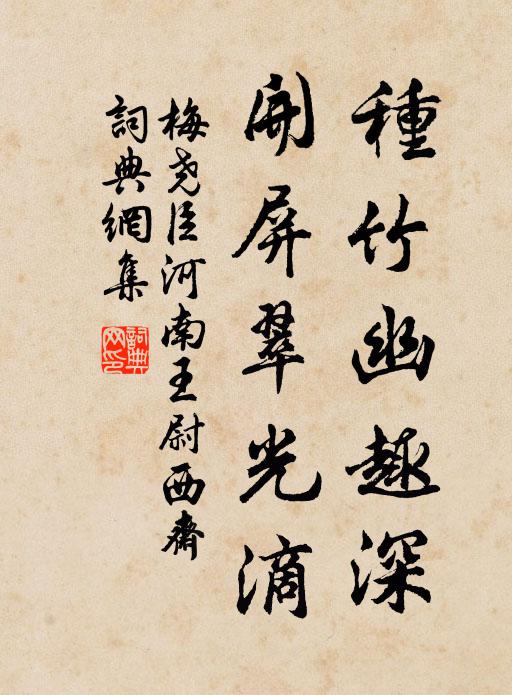 種竹幽趣深
開屏翠光滴
梅堯臣河南王尉西齋
詞典網集
詞典網印